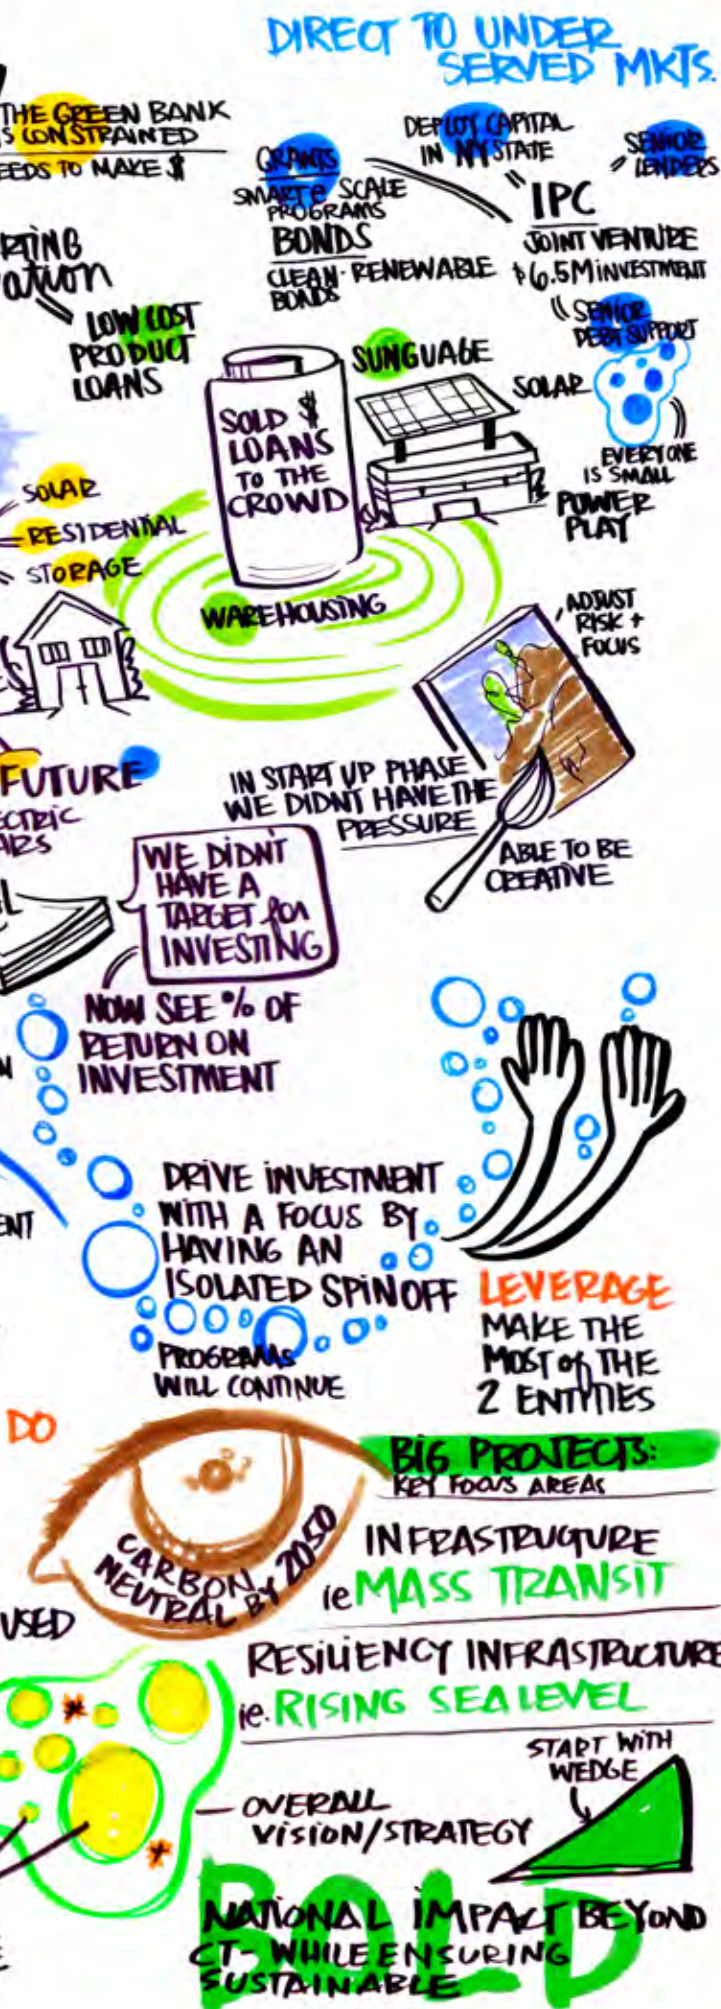 DIRECT TO UNDER
SERVED MKTS.
THE GREEN BANK
IS CONSTRAINED
NEEDS TO MAKE $
GRANTS
SMART-e SCALE
PROGRAMS
BONDS
CLEAN-RENEWABLE
BONDS
DEPLOY CAPITAL
IN NY STATE
IPC
JOINT VENTURE
$6.5M INVESTMENT
SENIOR
LENDERS
SENIOR
DEBT SUPPORT
LOW COST
PRODUCT
LOANS
SOLD $
LOANS
TO THE
CROWD
SUNGUAGE
SOLAR
EVERYONE
IS SMALL
POWER
PLAY
SOLAR
RESIDENTIAL
STORAGE
WAREHOUSING
ADJUST
RISK +
FOCUS
FUTURE
IN START UP PHASE
WE DIDNT HAVE THE
PRESSURE
ABLE TO BE
CREATIVE
WE DIDN'T
HAVE A
TARGET for
INVESTING
NOW SEE % OF
RETURN ON
INVESTMENT
DRIVE INVESTMENT
WITH A FOCUS BY
HAVING AN
ISOLATED SPINOFF
PROGRAMS
WILL CONTINUE
LEVERAGE
MAKE THE
MOST of THE
2 ENTITIES
DO
CARBON
NEUTRAL BY 2050
BIG PROJECTS:
KEY FOCUS AREAS
INFRASTRUCTURE
ie MASS TRANSIT
USED
RESILIENCY INFRASTRUCTURE
ie. RISING SEA LEVEL
START WITH
WEDGE
OVERALL
VISION/STRATEGY
BOLD
NATIONAL IMPACT BEYOND
CT- WHILE ENSURING
SUSTAINABLE